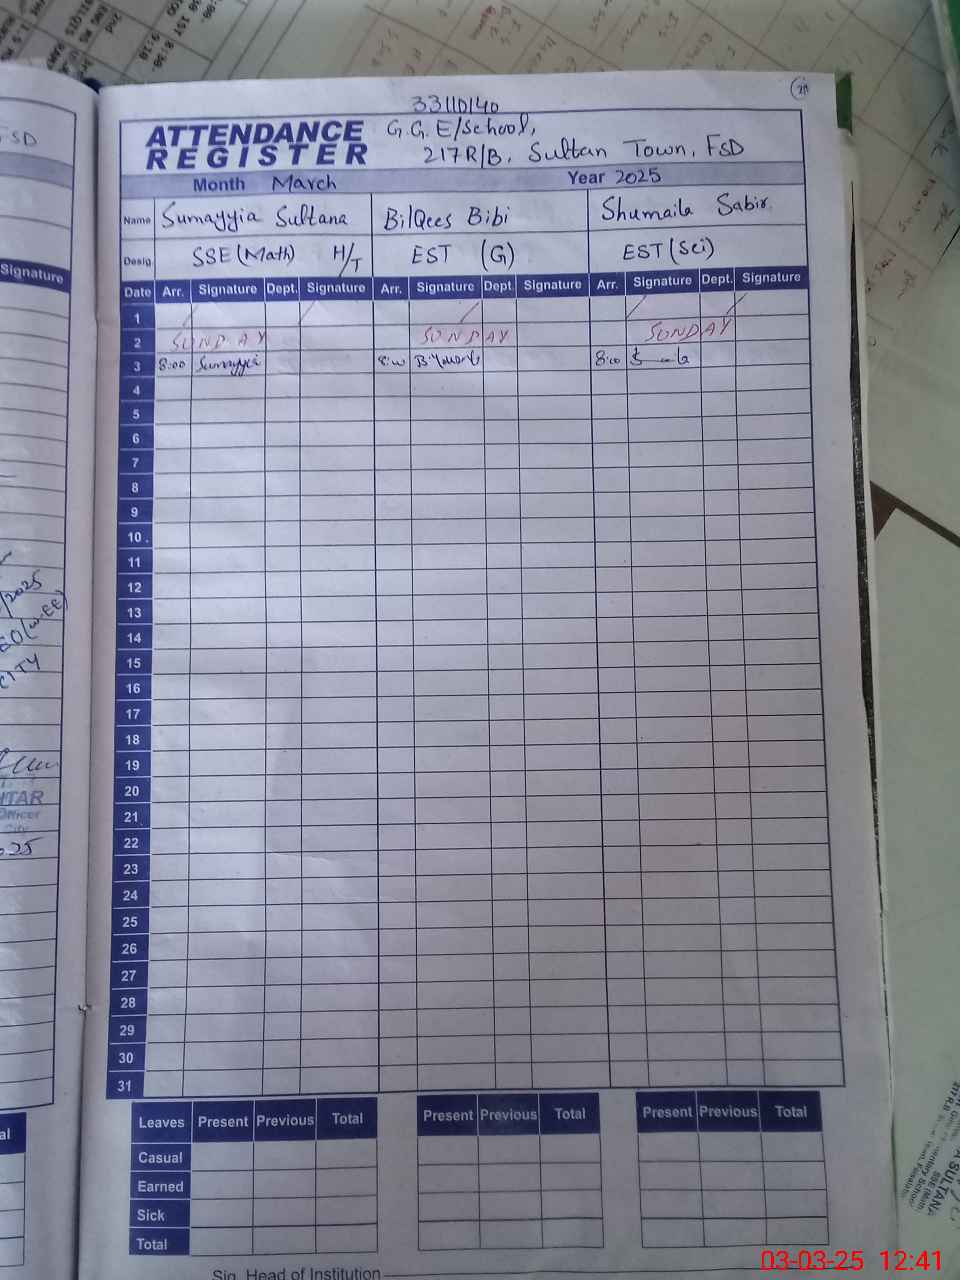 33110140
ATTENDANCE REGISTER
G.G.E/School,
217R/B, Sultan Town, FSD
Month March Year 2025
Name Sumayyia Sultana BilQees Bibi Shumaila Sabir.
Desig. SSE (Math) H/T EST (G) EST (Sci)
Date Arr. Signature Dept. Signature Arr. Signature Dept. Signature Arr. Signature Dept. Signature
1
2 SUNDAY SUNDAY SUNDAY
3 8:00 Sumayyia 8:00 8:00
4
5
6
7
8
9
10
11
12
13
14
15
16
17
18
19
20
21
22
23
24
25
26
27
28
29
30
31
Leaves Present Previous Total Present Previous Total Present Previous Total
Casual
Earned
Sick
Total
Sig. Head of Institution
FSD
Signature
/2025
CITY
Officer
City
03-03-25 12:41